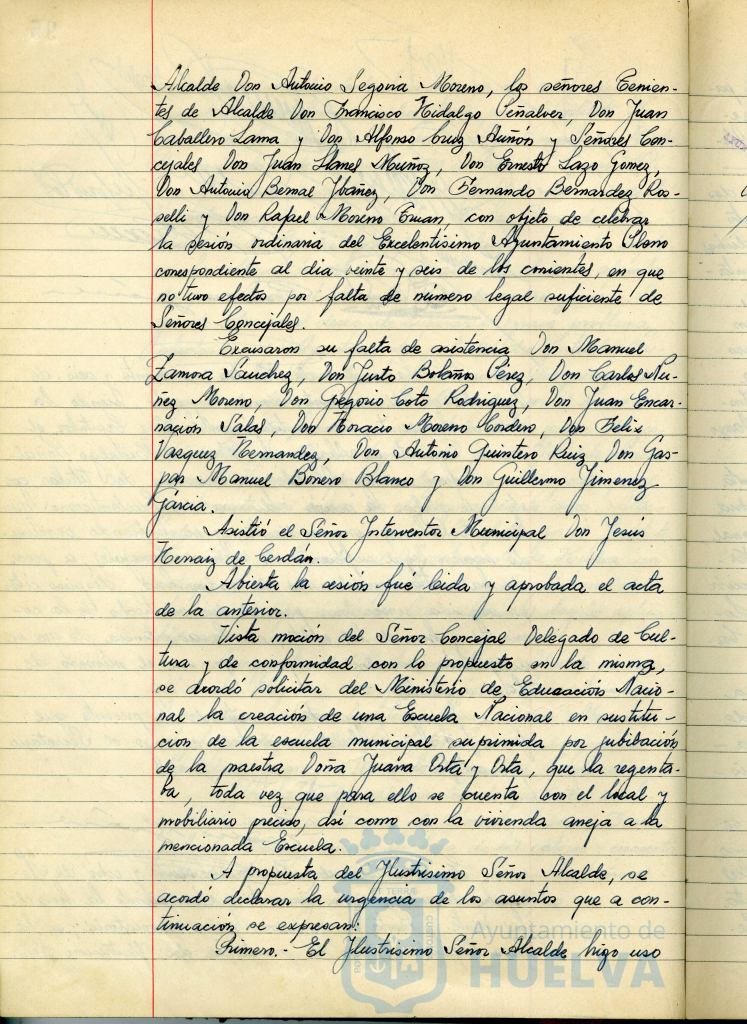 Alcalde Don Antonio Segovia Moreno, los señores Tenien-
tes de Alcalde Don Francisco Hidalgo Peñalver, Don Juan
Caballero Lama y Don Alfonso Cruz Auñón y Señores Con-
cejales Don Juan Llanes Muñoz, Don Ernesto Lazo Gomez,
Don Antonio Bernal Ybañez, Don Fernando Bernardez Ros-
selli y Don Rafael Moreno Truan, con objeto de celebrar
la sesión ordinaria del Excelentísimo Ayuntamiento Pleno
correspondiente al dia veinte y seis de los corrientes, en que
no tuvo efectos por falta de número legal suficiente de
Señores Concejales.
Excusaron su falta de asistencia Don Manuel
Zamora Sanchez, Don Justo Bolaños Perez, Don Carlos Nu-
ñez Moreno, Don Gregorio Coto Rodriguez, Don Juan Encar-
nación Salas, Don Horacio Moreno Cordero, Don Felix
Vazquez Hernandez, Don Antonio Quintero Ruiz, Don Gas-
par Manuel Bonero Blanco y Don Guillermo Jimenez
Garcia.
Asistió el Señor Interventor Municipal Don Jesús
Herraiz de Cerdán.
Abierta la sesión fué leida y aprobada el acta
de la anterior.
Vista moción del Señor Concejal Delegado de Cul-
tura y de conformidad con lo propuesto en la misma,
se acordó solicitar del Ministerio de Educación Nacio-
nal la creación de una Escuela Nacional en sustitu-
cion de la escuela municipal suprimida por jubilación
de la maestra Doña Juana Orta y Orta, que la regenta-
ba, toda vez que para ello se cuenta con el local y
mobiliario preciso, así como con la vivienda aneja a la
mencionada Escuela.
A propuesta del Ilustrisimo Señor Alcalde, se
acordó declarar la urgencia de los asuntos que a con-
tinuación se expresan:
Primero.- El Ilustrisimo Señor Alcalde hizo uso
Ayuntamiento de
HUELVA